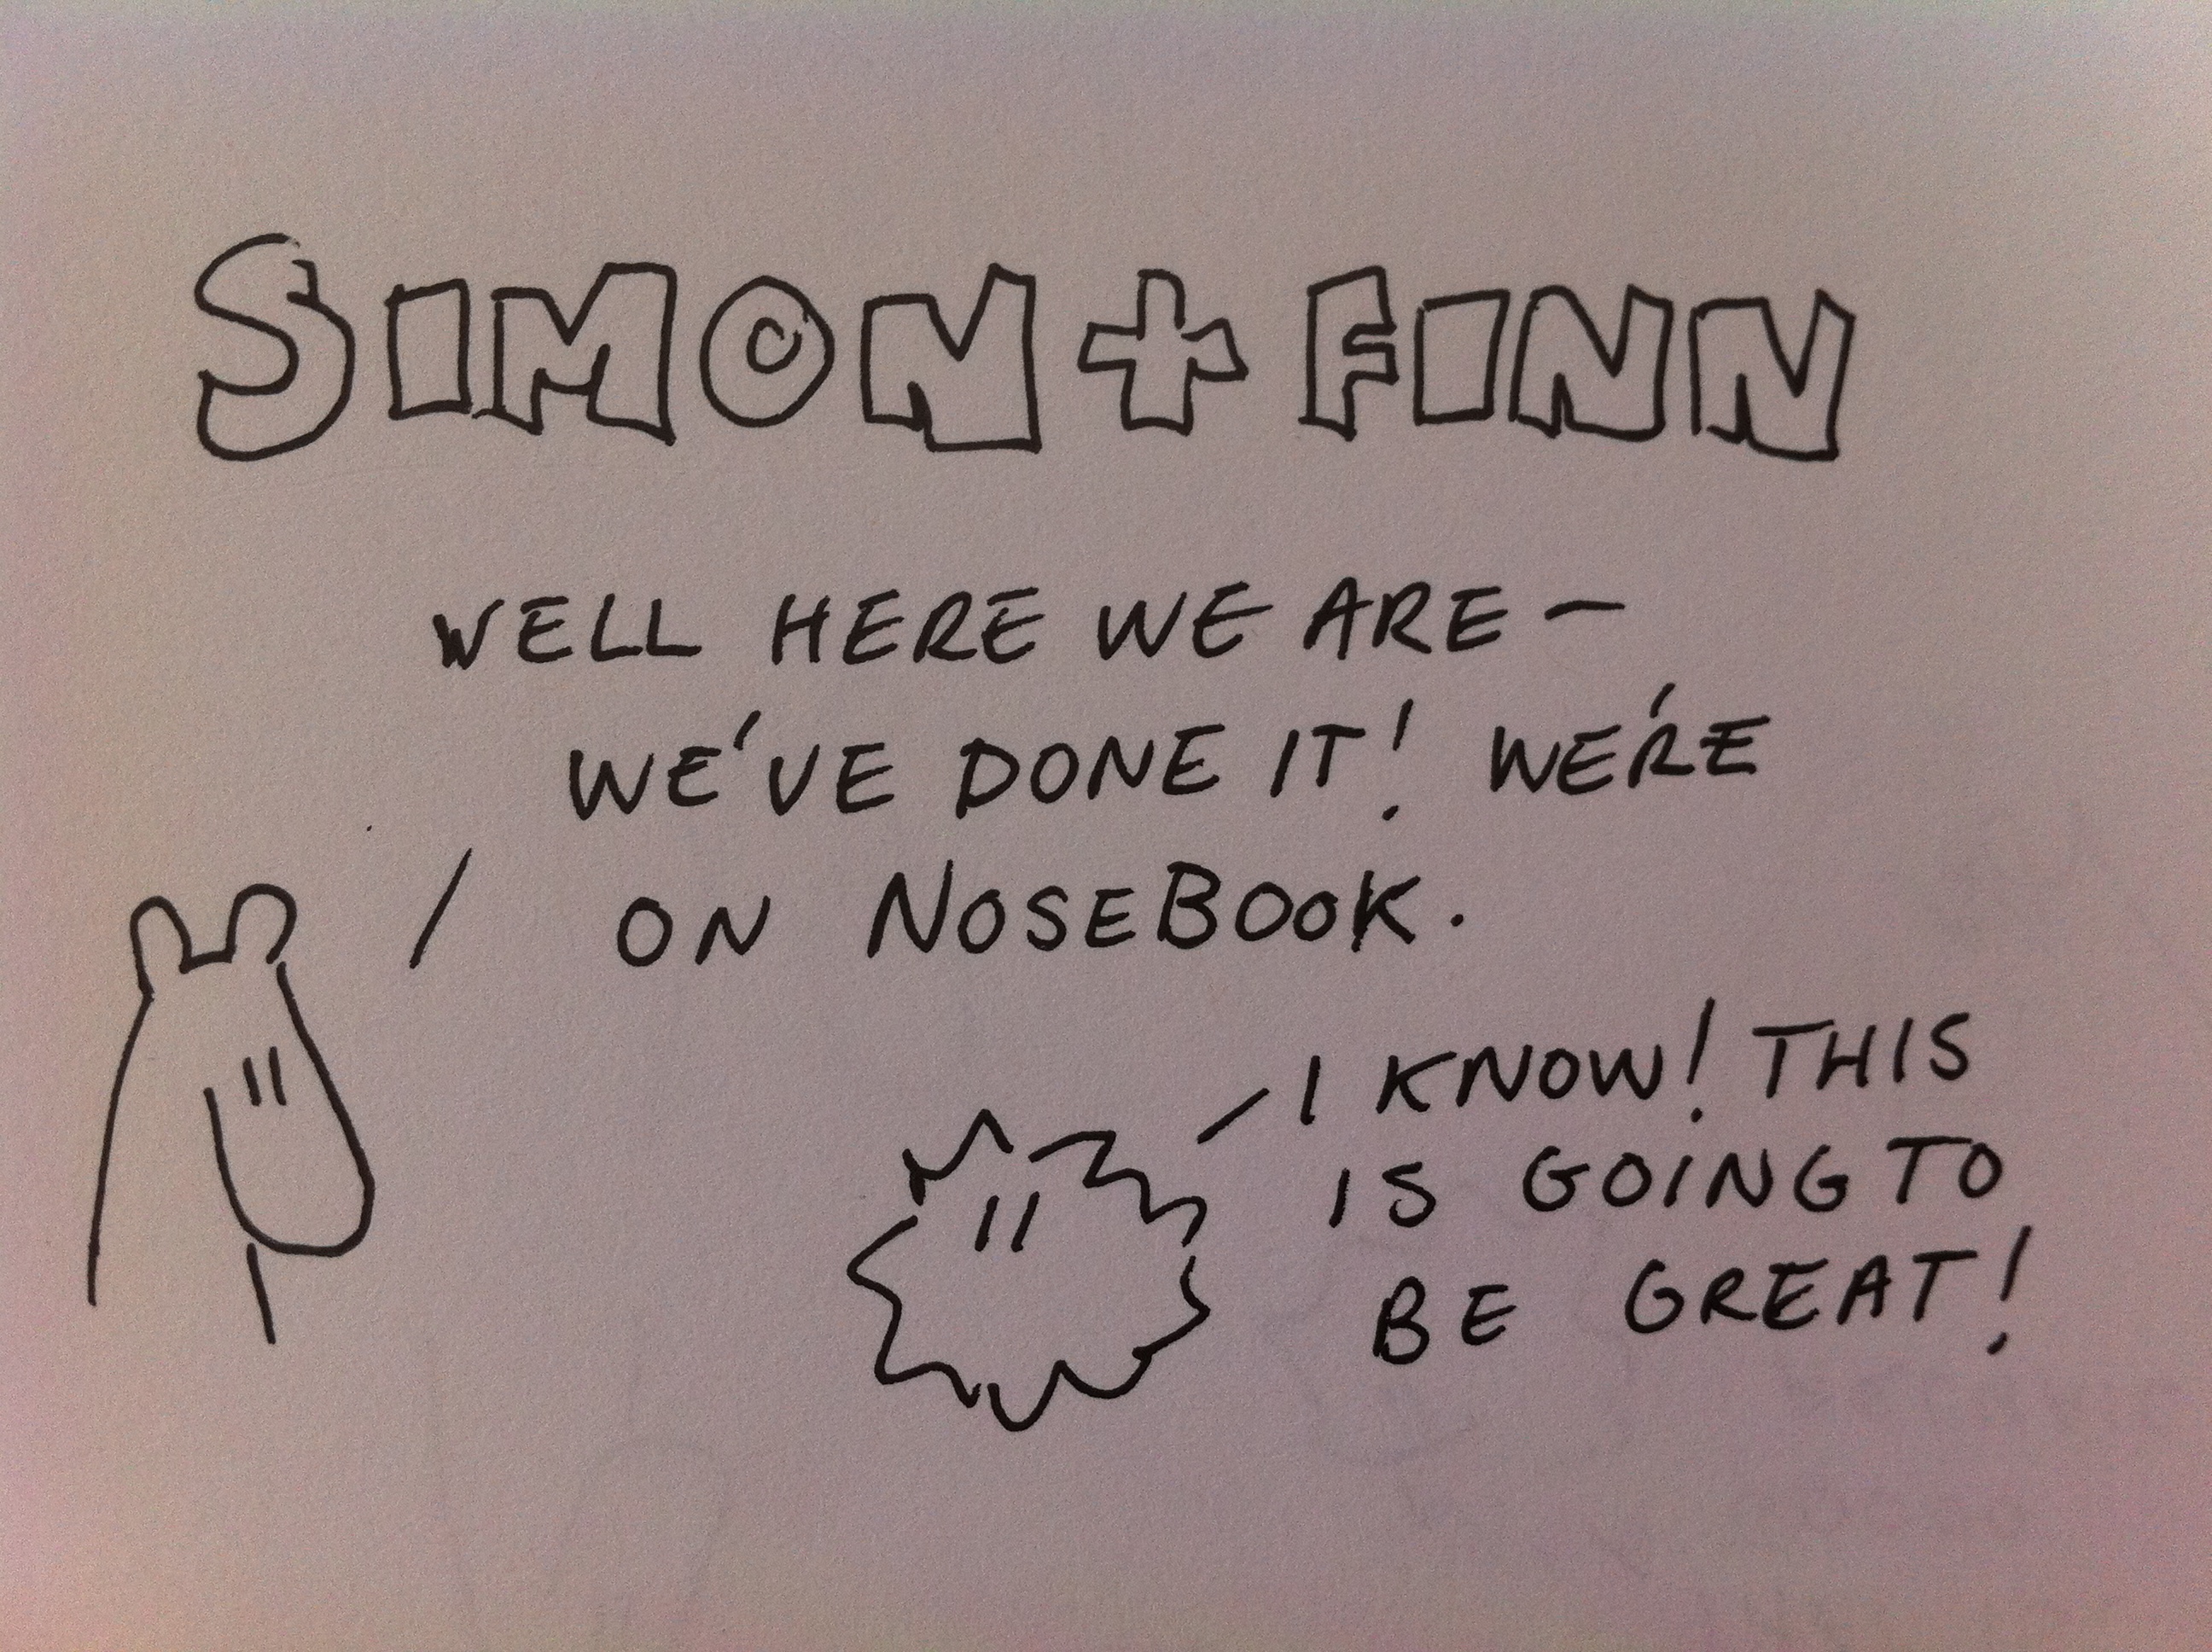 SIMON + FINN
WELL HERE WE ARE —
WE'VE DONE IT! WE'RE
ON NOSEBOOK.
I KNOW! THIS
IS GOING TO
BE GREAT!